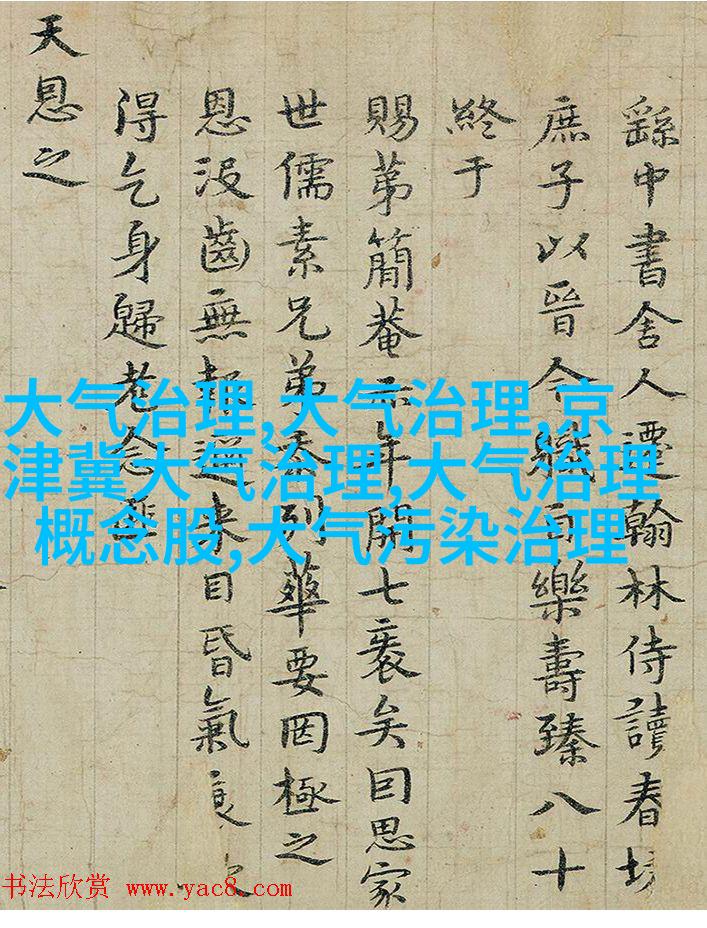 繇中書舍人遷翰林侍讀春坊
庶子以晉今職樂壽臻八十
終于
賜苐簡菴年開七袠矣囙思家
世儒素兄弟忝列華要罔極之
恩沒齒無報邇来目昏氣衰
得乞身歸老念
天恩之
大气治理,大气治理,京
津冀大气治理,大气治理
概念股,大气污染治理
书法欣赏 www.yac8.com